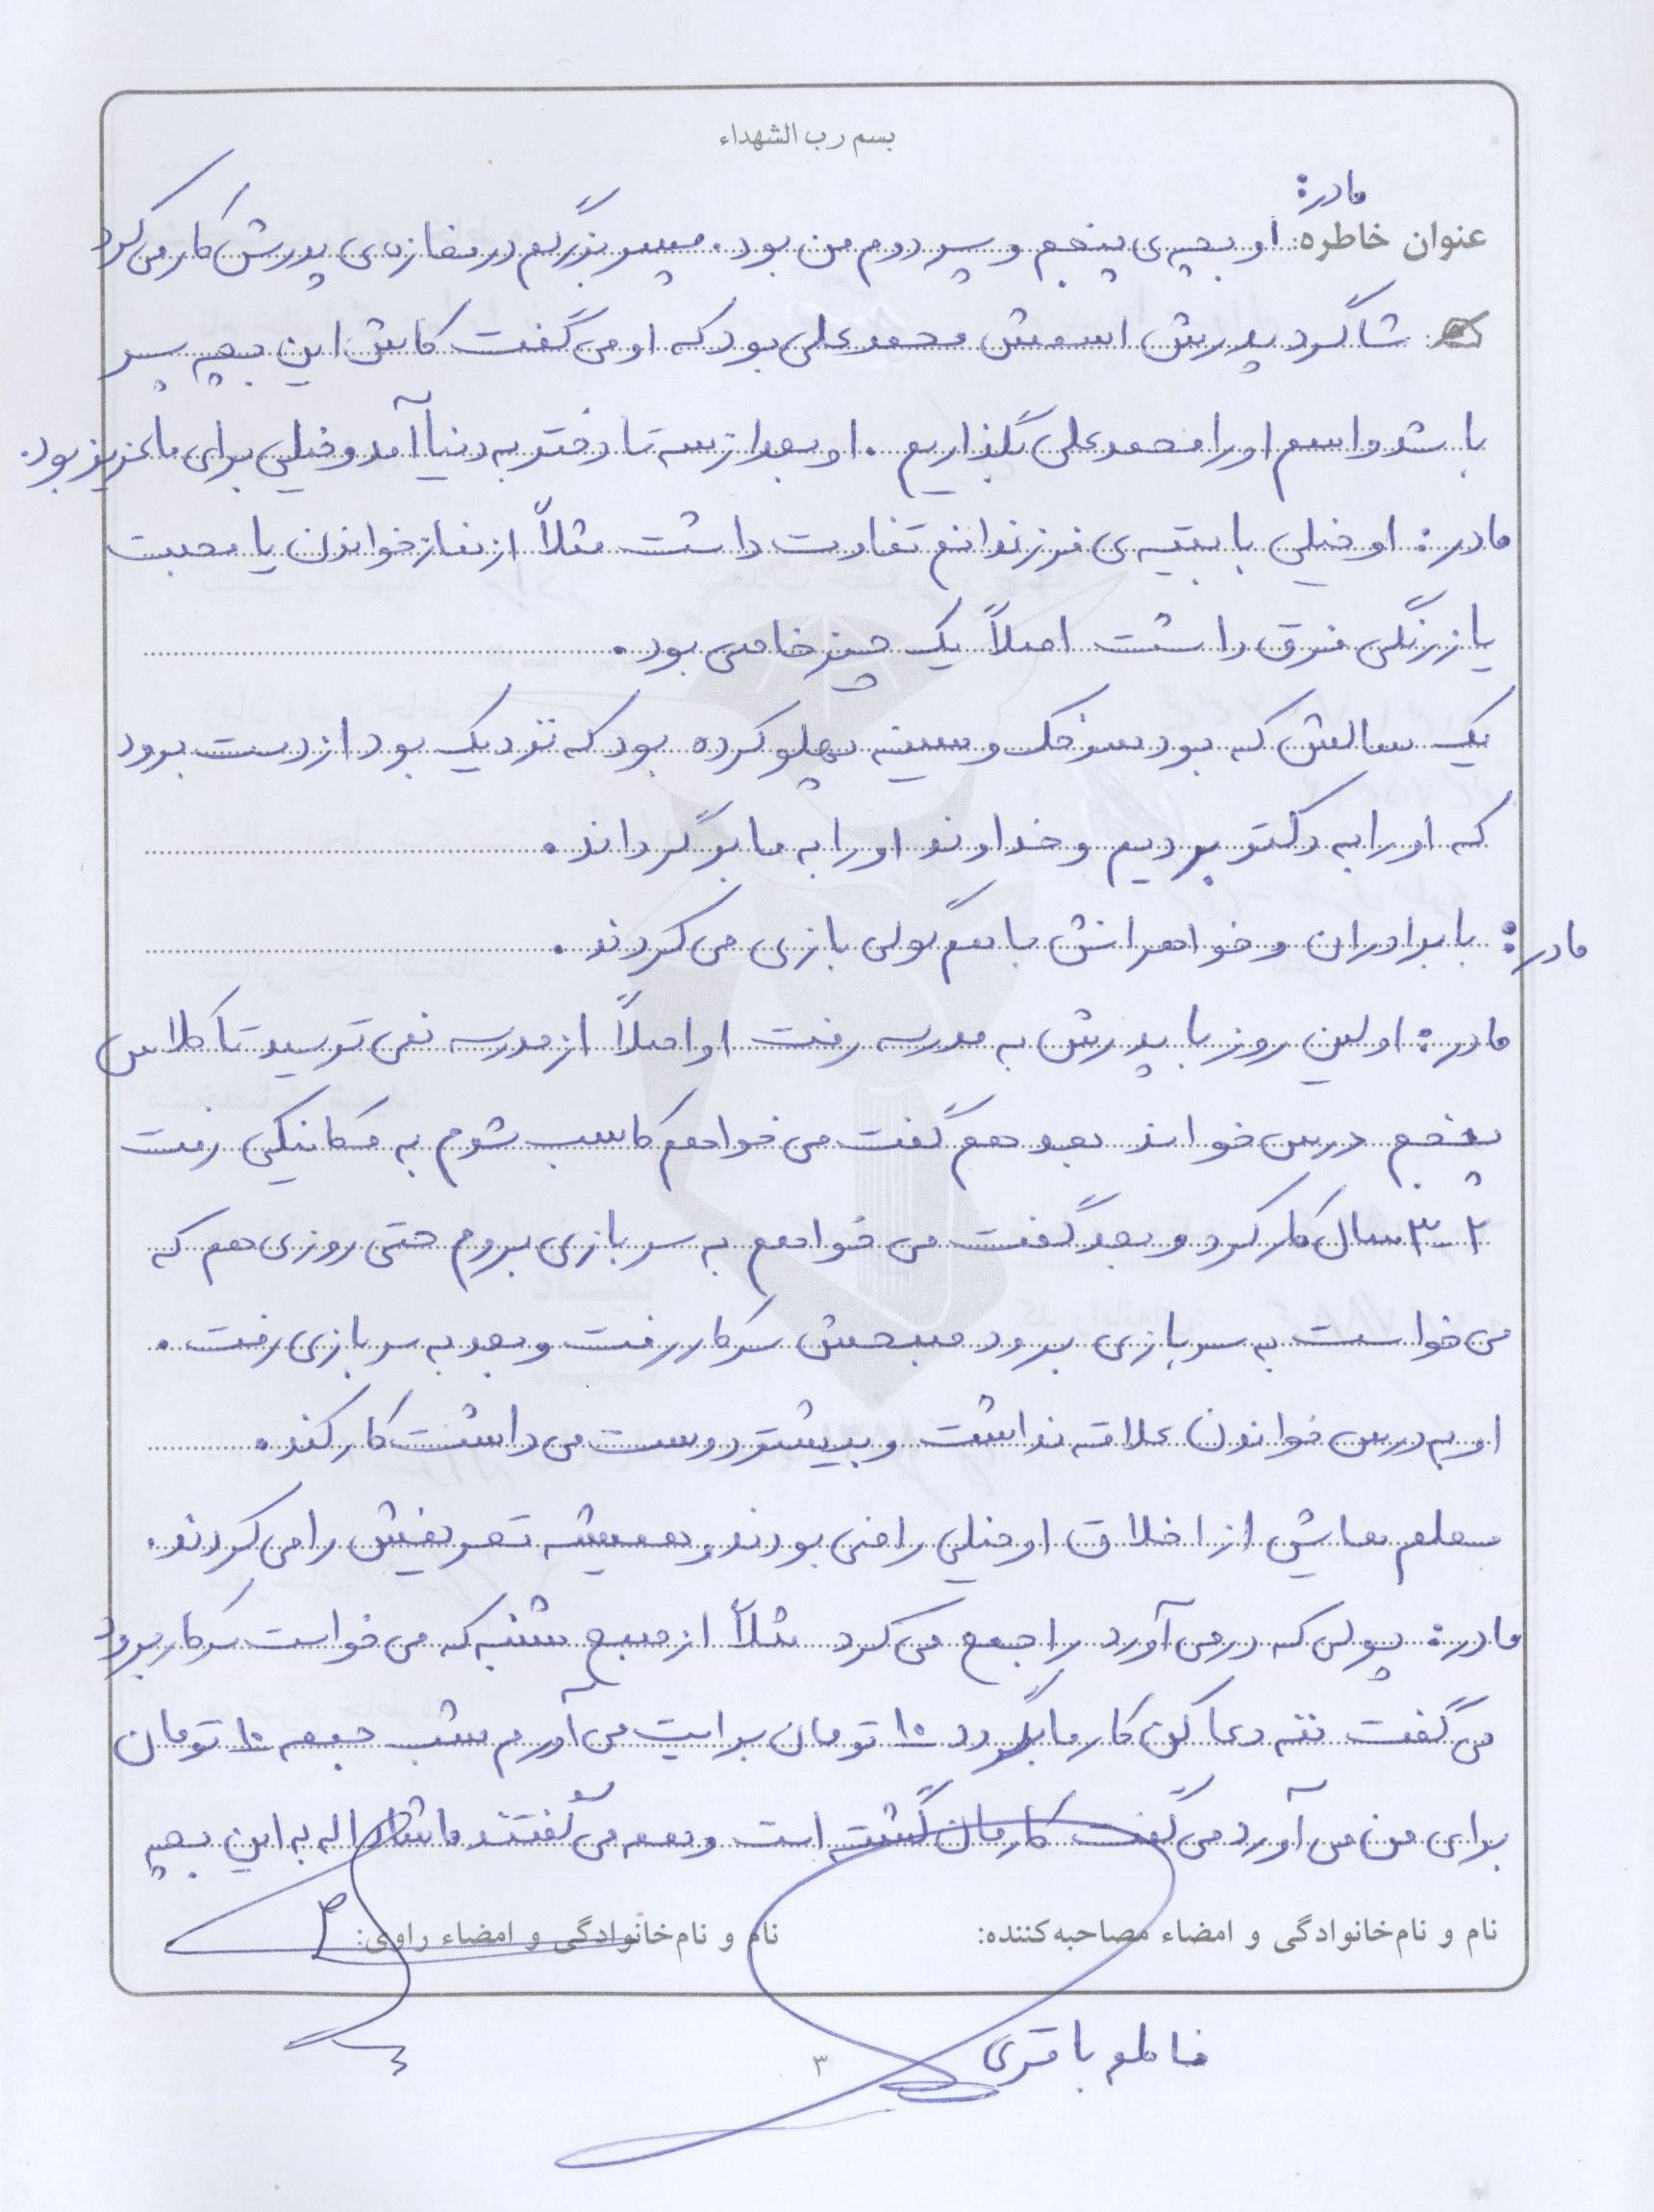 بسم رب الشهداء
مادر:
عنوان خاطره: او بچه‌ی پنجم و پسر دوم من بود. پسر بزرگم در مغازه‌ی پدرش کار می‌کرد
شاگرد پدرش اسمش محمدعلی بود که او می‌گفت کاش این بچه پسر
باشد و اسم او را محمدعلی بگذاریم. او بعد از سه تا دختر به دنیا آمد و خیلی برای ما عزیز بود.
مادر: او خیلی با بقیه‌ی فرزندانم تفاوت داشت مثلاً از نماز خواندن یا محبت
یا زرنگی فرق داشت اصلاً یک چیز خاصی بود.
یک سالش که بود سرخک و سینه پهلو کرده بود که نزدیک بود از دست برود
که او را به دکتر بردیم و خداوند او را به ما برگرداند.
مادر: با برادران و خواهرانش با هم گولی بازی می‌کردند.
مادر: اولین روز با پدرش به مدرسه رفت او اصلاً از مدرسه نمی‌ترسید تا کلاس
پنجم درس خواند بعد هم گفت می‌خواهم کاسب شوم به مکانیکی رفت
۲-۳ سال کار کرد و بعد گفت می‌خواهم به سربازی بروم حتی روزی هم که
می‌خواست به سربازی برود صبحش سر کار رفت و بعد به سربازی رفت.
او به درس خواندن علاقه نداشت و بیشتر دوست می‌داشت کار کند.
معلم هایش از اخلاق او خیلی راضی بودند و همیشه تعریفش را می‌کردند.
مادر: پولی که در می‌آورد را جمع می‌کرد مثلاً از صبح شنبه که می‌خواست سر کار برود
می‌گفت ننه دعا کن کار ما بگردد ۱۰ تومان برایت می‌آورم شب جمعه ۱۰ تومان
برای من می‌آورد می‌گفت کارمان گشته است و همه می‌گفتند ماشاء اله به این بچه
نام و نام‌خانوادگی و امضاء مصاحبه‌کننده: نام و نام‌خانوادگی و امضاء راوی:
فاطمه باقری
۳